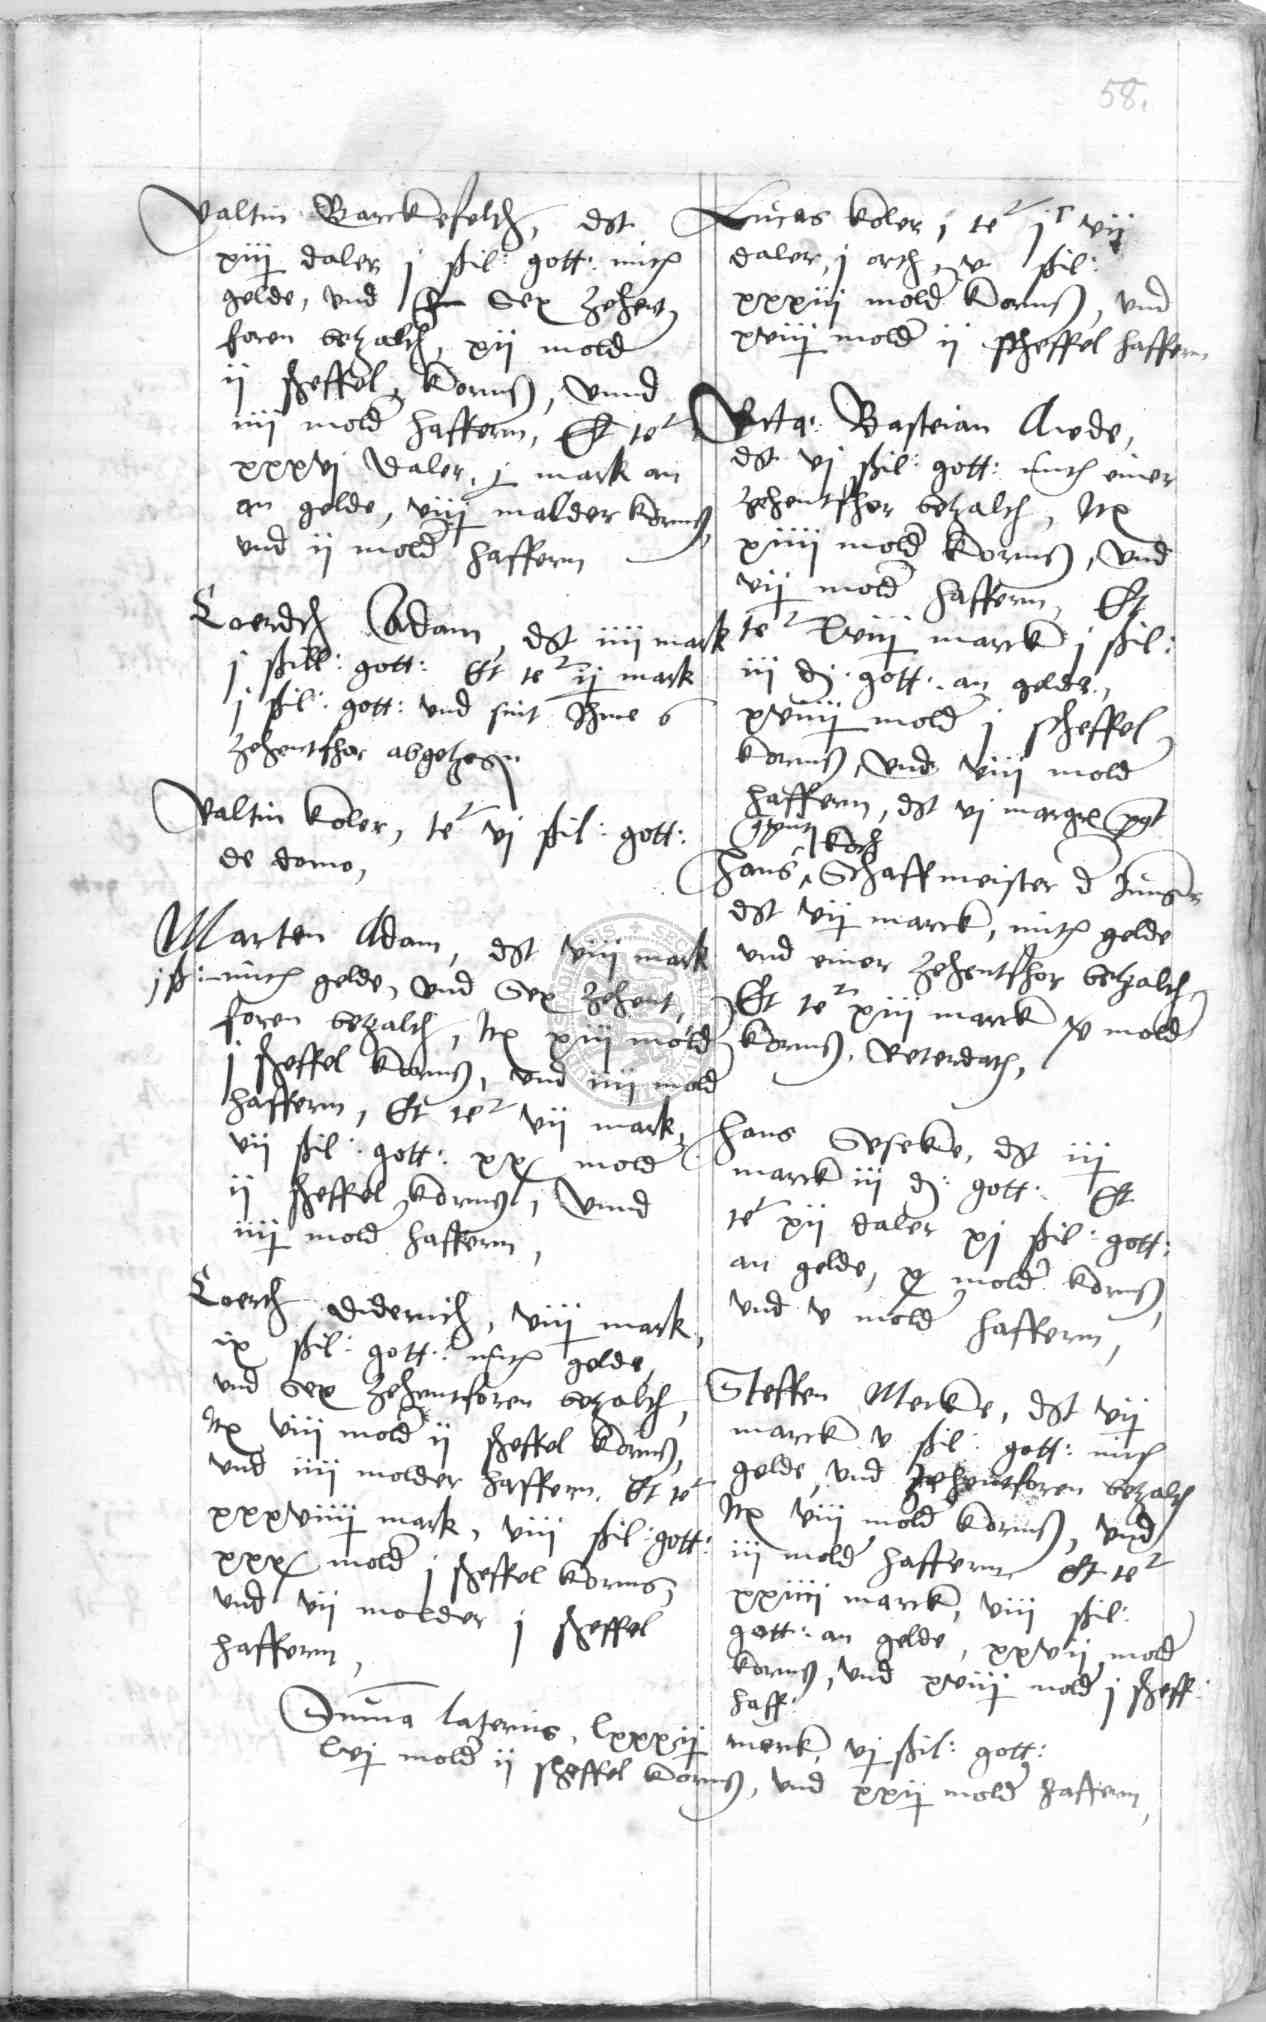 58.
Valtin Barckefelth, dst
xiij daler j ßil: gott: mith
gelde, vnd Sex Zehent
foren betzalth, xij mold
ij scheffel Korns, vnnd
iiij mold haffern, Et te
xxxvj daler, j mark an
an gelde, viij malder korns,
vnd ij mold haffern
Coerdth Adam, dst iiij mark
j ßill: gott: Et te ij mark
j ßil: gott: vnd sint Ihme 6
Zehentfhor abgetzogen
Valtin Koler, te vj ßil: gott:
de domo,
Marten Adam, dst viij mark
j ß: mith gelde, vnd Sex Zehent,
foren betzalth, Itx xiij mold
j scheffel Korns, vnd iiij mold
haffern, Et te vij mark,
vij ßil: gott: xx mold
ij scheffel Korns, vnnd
iiij mold haffern,
Coerth diderich, viij mark,
ix ßil: gott: mith gelde,
vnd Sex Zehentforen betzalth,
Itx viij mold ij scheffel Korns,
vnd iiij molder haffern. Et te
xxxviiij mark, viij ßil: gott:
xxx mold j scheffel Korns,
vnd vij molder j scheffel
haffern,
Lucas Koler, te vij
daler, j orth, v ßil:
xxxiij mold Korns, vnd
xviij mold ij scheffel haffern
Bastian Awde,
dst vj ßil: gott: mith einer
Zehentfhor betzalth, Itx
xiiij mold Korns, vnd
vij mold haffern, Et
te lviij marck j ßil:
iii d: gott: an gelde,
xviiij mold j scheffel
Korns, vnd viij mold
haffern, dst vj
Koch
Hans Schaffmeister d Junger
dst vij marck, mith gelde
vnd einer Zehentfhor betzalth,
Et te xiij marck v mold
Korns,
Hans Geseke, dst iij
marck iij d: gott: Et
te xij daler xj ßil: gott:
an gelde, x mold Korns,
vnd v mold haffern,
Steffen Merke, dst vij
marck v ßil: gott: mith
gelde, vnd Zehentforen betzalth
Itx viij mold Korns, vnd
iij mold haffern, Et te
xxiiij marck, viij ßil:
gott: an gelde, xxvij mold
Korns, vnd xviij mold j scheff:
haff:
Summa lateris, lxxxij mark vj ßil: gott:
lvj mold ij scheffel Korns, vnd xxij mold haffern,